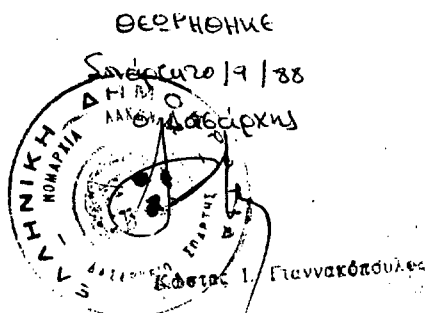 ΘΕΩΡΗΘΗΚΕ
Σπάρτη 20/9/88
Ο Δασάρχης
ΕΛΛΗΝΙΚΗ ΔΗΜΟ
ΝΟΜΑΡΧΙΑ ΛΑΚΩΝ
ΔΑΣΑΡΧΕΙΟ ΣΠΑΡΤΗΣ
Κώστας Ι. Γιαννακόπουλος